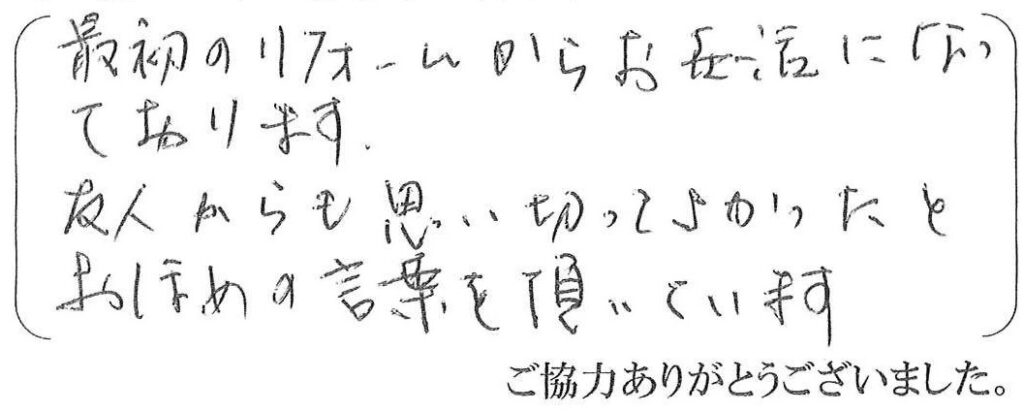 最初のリフォームからお世話になっ
ております.
友人からも思い切ってよかったと
おほめの言葉を頂いています
ご協力ありがとうございました。